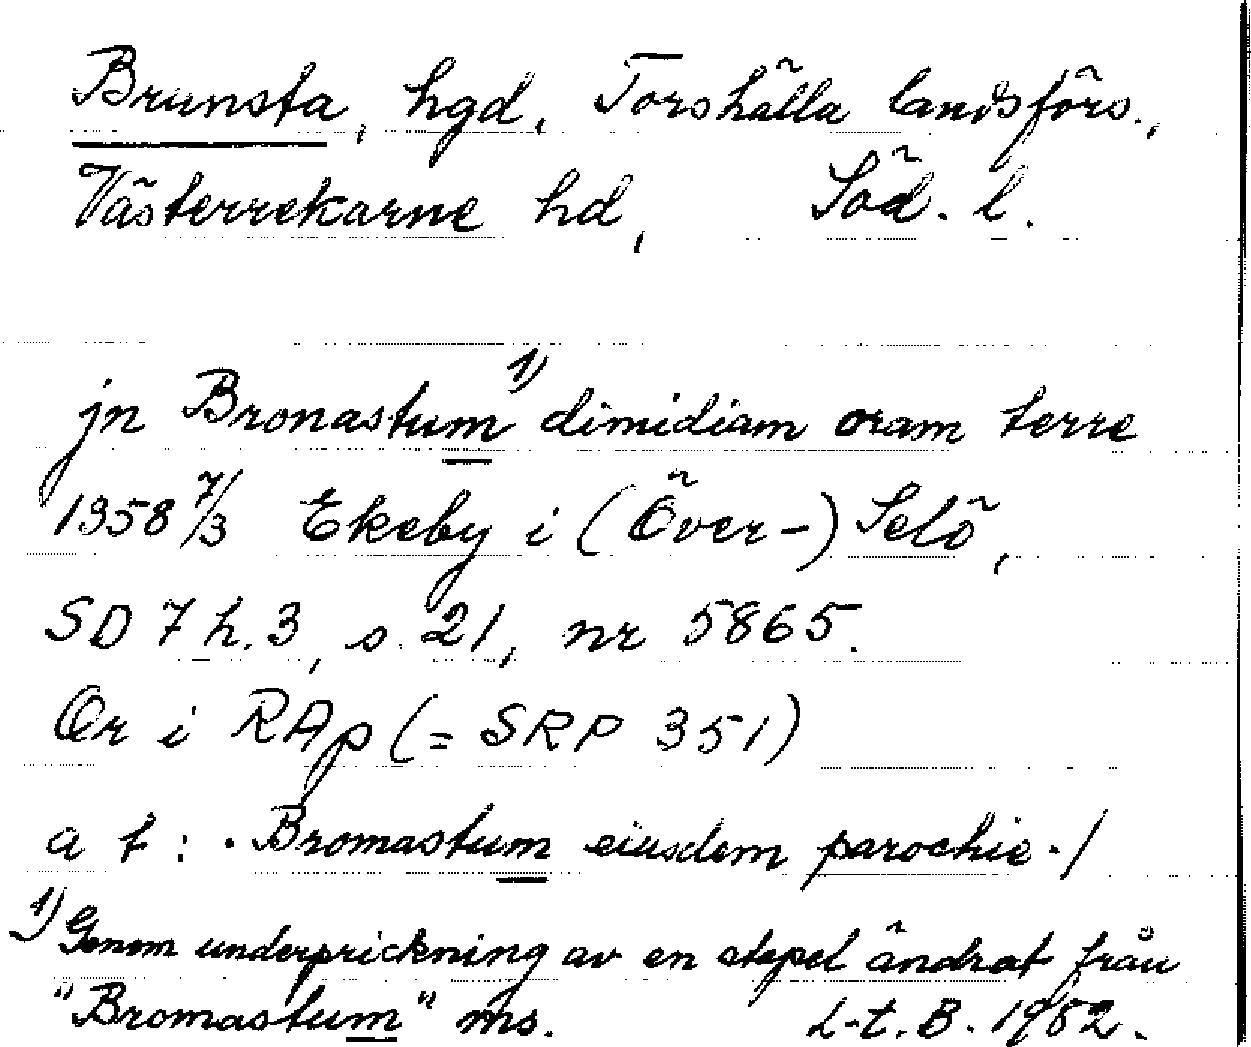 Brunsta, hgd, Torshälla landsförs.,
Västerrekarne hd, Söd. l.
jn Bronastum 1) dimidiam oram terre
1358 7/3 Ekeby i (Över-) Selö,
SD 7 h. 3, s. 21, nr 5865.
Or i RAp (= SRP 351)
a t : · Bromastum eiusdem parochie · /
1) Genom underprickning av en stapel ändrat från
"Bromastum" ms. L-t. B. 1952.